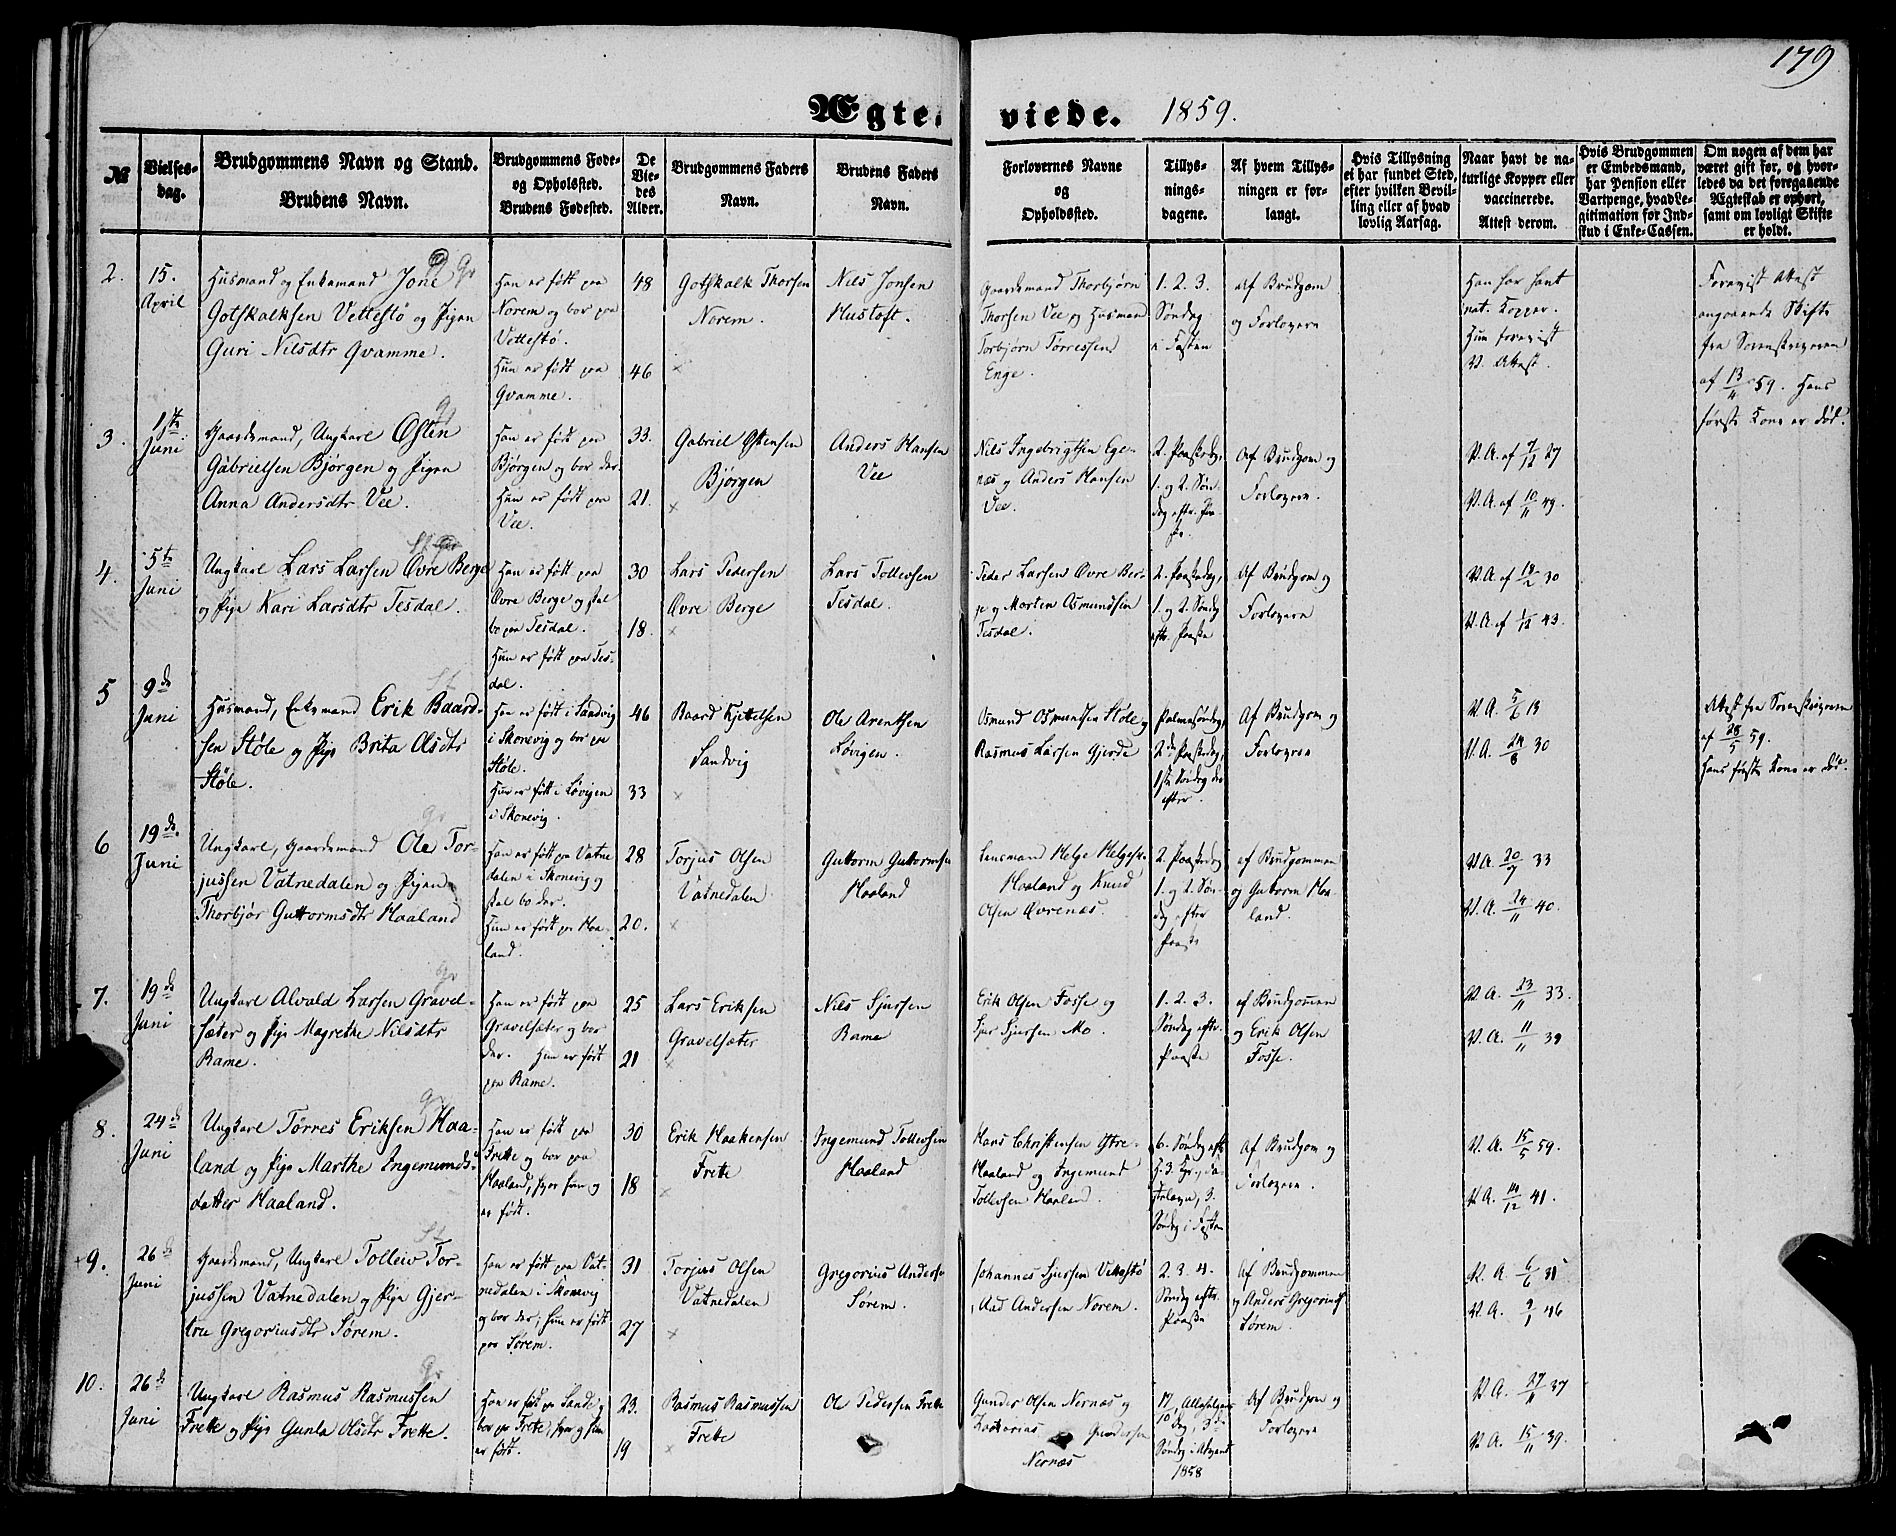 179
Ægte- viede. 1859.
№
Vielses-
dag.
Brudgommens Navn og Stand.
Brudens Navn.
Brudgommens Føde-
og Opholsted.
Brudens Fødested.
De
Vie-
des
Alder.
Brudgommens Faders
Navn.
Brudens Faders
Navn.
Forlovernes Navne
og
Opholdsted.
Tillys-
nings-
dagene.
Af hvem Tillys-
ningen er for-
langt.
Hvis Tillysning
ei har fundet Sted,
efter hvilken Bevil-
ling eller af hvad
lovlig Aarsag.
Naar havt de na-
turlige Kopper eller
vaccinerede.
Attest derom.
Hvis Brudgommen
er Embedsmand,
har Pension eller
Vartpenge, hvad Le-
gitimation for Ind-
skud i Enke-Cassen.
Om nogen af dem har
været gift før, og hvor-
ledes da det foregaaende
Ægteskab er ophørt,
samt om lovligt Skifte
er holdt.
2.
15.
April
Husmand og Enkemand Jone
Gotskalksen Vettestø og Pigen
Guri Nilsdtr Qvamme.
Han er født paa
Norem og bor paa
Vettestø.
Hun er født paa
Qvamme.
48
46
Gotskalk Thorsen
Norem.
Nils Jonsen
Hustoft.
Gaardmand Thorbjørn
Thorsen Vee og Husmand
Torbjørn Tørressen
Enge.
1. 2. 3.
Søndag
i Fasten
Af Brudgom
og Forlovern
Han har havt
nat. Kopper.
Hun forevist
V. Attest.
Forevist Attest
angaaende Skifte
fra Sorenskriveren
af 13/4 59. Hans
første Kone er død.
3.
1ste
Juni
Gaardmand, Ungkarl Østen
Gabrielsen Bjørgen og Pigen
Anna Andersdtr Vee.
Han er født paa
Bjørgen og bor der.
Hun er født paa
Vee.
33.
21.
Gabriel Østensen
Bjørgen
Anders Hansen
Vee
Nils Ingebrigtsen Ege-
næs og Anders Hansen
Vee.
2. Paaskedag,
1. og 2. Søn-
dag eftr. Paa-
ske.
Af Brudgom og
Forlovern.
V. A. af 7/12 27
V. A. af 10/11 49.
4.
5te
Juni
Ungkarl Lars Larsen Øvre Berge
og Pige Kari Larsdtr Tesdal.
Han er født paa
Øvre Berge og skal
bo paa Tesdal.
Hun er født paa Tes-
dal.
30
18.
Lars Pedersen
Øvre Berge
Lars Tollevsen
Tesdal.
Peder Larsen Øvre Ber-
ge og Morten Asmundsen
Tesdal.
2. Paaskedag,
1. og 2. Søndag
eftr. Paaske
Af Brudgom og
Forlovern
V. A. af 19/2 30
V. A. af 1/12 43.
5
9de
Juni
Husmand, Enkemand Erik Baard-
sen Støle og Pige Brita Olsdtr
Støle.
Han er født i Sandvig
i Skonevig og bor paa
Støle.
Hun er født i Løvigen
i Skonevig.
46
33
Baard Kjettelsen
Sandvig
Ole Arentsen
Løvigen.
Osmund Osmundsen Støle og
Rasmus Larsen Gjerde
Palmesøndag,
2den Paaskedag,
1ste Søndag der-
efter.
Af Brudgom og
Forlovern
V. A. 5/6 13
V. A. 24/6 30
Attest fra Sorenskriveren
af 28/5 59.
Hans første Kone er død.
6
19de
Juni
Ungkarl, Gaardmand Ole Tor-
jussen Vatnedalen og Pigen
Thorbjør Guttormsdtr Haaland
Han er født paa Vatne-
dalen i Skonevig og
skal bo der.
Hun er født paa Haa-
land.
28
20.
Torjus Olsen
Vatnedalen
Guttorm Guttormsen
Haaland
Lensmand Helge Helgesen
Haaland og Knud
Olsen Øvrenæs.
2. Paaskedag
1. og 2. Søn-
dag efter
Paaske
af Brudgommen
og Guttorm Haa-
land.
V. A. 20/7 33
V. A. 24/11 40.
7.
19de
Juni
Ungkarl Alvald Larsen Gravel-
sæter og Pige Magrethe Nilsdtr
Rame.
Han er født paa
Gravelsæter og bor
der. Hun er født
paa Rame.
25
21
Lars Eriksen
Gravelsæter
Nils Sjursen
Rame
Erik Olsen Fosse og
Sjur Sjursen Mo.
1. 2. 3.
Søndag eftr.
Paaske
af Brudgommen
og Erik Olsen
Fosse.
V. A. 23/11 33.
V. A. 11/11 39
8.
24de
Juni
Ungkarl Tørres Eriksen Haa-
land og Pige Marthe Ingemunds-
datter Haaland.
Han er født paa
Frette og bor paa
Haaland, hvor hun og
er født.
30
18
Erik Haakensen
Frette
Ingemund Tollevsen
Haaland
Hans Christensen Ytre-
Haaland og Ingemund
Tollevsen Haaland.
6. Søndag eftr.
Søndag i Fasten
Af Brudgom og
Forlovern.
V. A. 15/5 59.
V. A. 14/12 41.
9.
26de
Juni
Gaardmand, Ungkarl Tolleiv Tor-
jussen Vatnedalen og Pige Gjer-
tru Gregoriusdtr Sørem.
Han er født paa Vat-
nedalen i Skonevig
og bor der; hun er født
paa Sørem.
31
27
Torjus Olsen
Vatnedalen
Gregorius Anderse
Sørem.
Johannes Sjursen Vettestø
Aad Andersen Norem.
2. 3. 4.
Søndag eftr.
Paaske
Af Brudgommen
og Anders Gregorius
Sørem.
V. A. 6/6 35
V. A. 9/1 46
10.
26de
Juni
Ungkarl Rasmus Rasmussen
Frette og Pige Gunla Olsdtr Frette.
Han er født paa Sande og
bor paa Frette, hvor og hun
er født.
23.
19
Rasmus Rasmussen
Frette
Ole Pedersen Frette
Gunder Olsen Nernæs og
Zakarias Gundersen
Nernæs
Søndag i Advent
1858
Af Brudgom og
Forlovern
V. A. 27/11 37
V. A. 15/11 39.